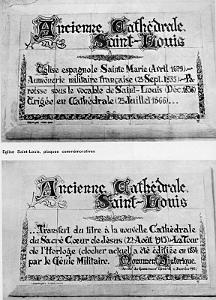 Ancienne Cathédrale
Saint-Louis
Eglise espagnole Sainte Marie (Avril 1679)_
Aumônerie militaire française (23 Sept. 1535)_Pa
roisse sous le vocable de Saint-Louis (Déc. 1836)
Erigée en Cathédrale (25 Juillet 1866)...
Eglise Saint-Louis, plaques commémoratives
Ancienne Cathédrale
Saint-Louis
...Transfert du titre à la nouvelle Cathédrale
du Sacré Cœur de Jésus (22 Août 1913)_La Tour
de l'Horloge (clocher actuel) a été édifiée en
par le Génie Militaire. Monument Historique.